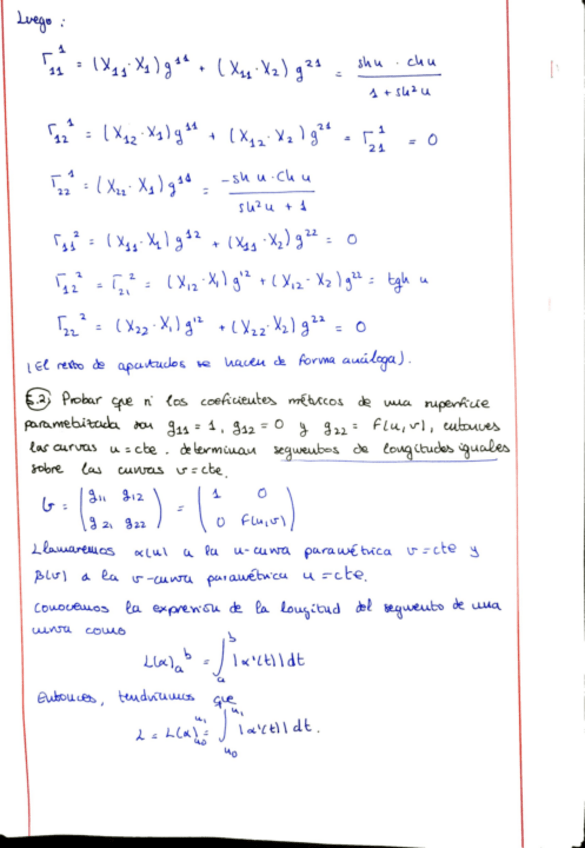 Luego:
Γ₁₁¹ = (X₁₁·X₁)g¹¹ + (X₁₁·X₂)g²¹ = shu · chu / 1 + sh²u
Γ₁₂¹ = (X₁₂·X₁)g¹¹ + (X₁₂·X₂)g²¹ = Γ₂₁¹ = 0
Γ₂₂¹ = (X₂₂·X₁)g¹¹ = -sh u·ch u / sh²u + 1
Γ₁₁² = (X₁₁·X₁)g¹² + (X₁₁·X₂)g²² = 0
Γ₁₂² = Γ₂₁² = (X₁₂·X₁)g¹² + (X₁₂·X₂)g²² = tgh u
Γ₂₂² = (X₂₂·X₁)g¹² + (X₂₂·X₂)g²² = 0
(El resto de apartados se hacen de forma análoga).
5.2) Probar que si los coeficientes métricos de una superficie
parametrizada son g₁₁ = 1, g₁₂ = 0 y g₂₂ = F(u,v), entonces
las curvas u = cte. determinan segmentos de longitudes iguales
sobre las curvas v = cte.
G = (g₁₁ g₁₂ / g₂₁ g₂₂) = (1 0 / 0 F(u,v))
Llamaremos α(u) a la u-curva paramétrica v = cte y
β(v) a la v-curva paramétrica u = cte.
Conocemos la expresión de la longitud del segmento de una
curva como
L(α)ₐᵇ = ∫ₐᵇ |α'(t)| dt
Entonces, tendríamos que
L = L(α)ᵤ₀ᵘ¹ = ∫ᵤ₀ᵘ¹ |α'(t)| dt.